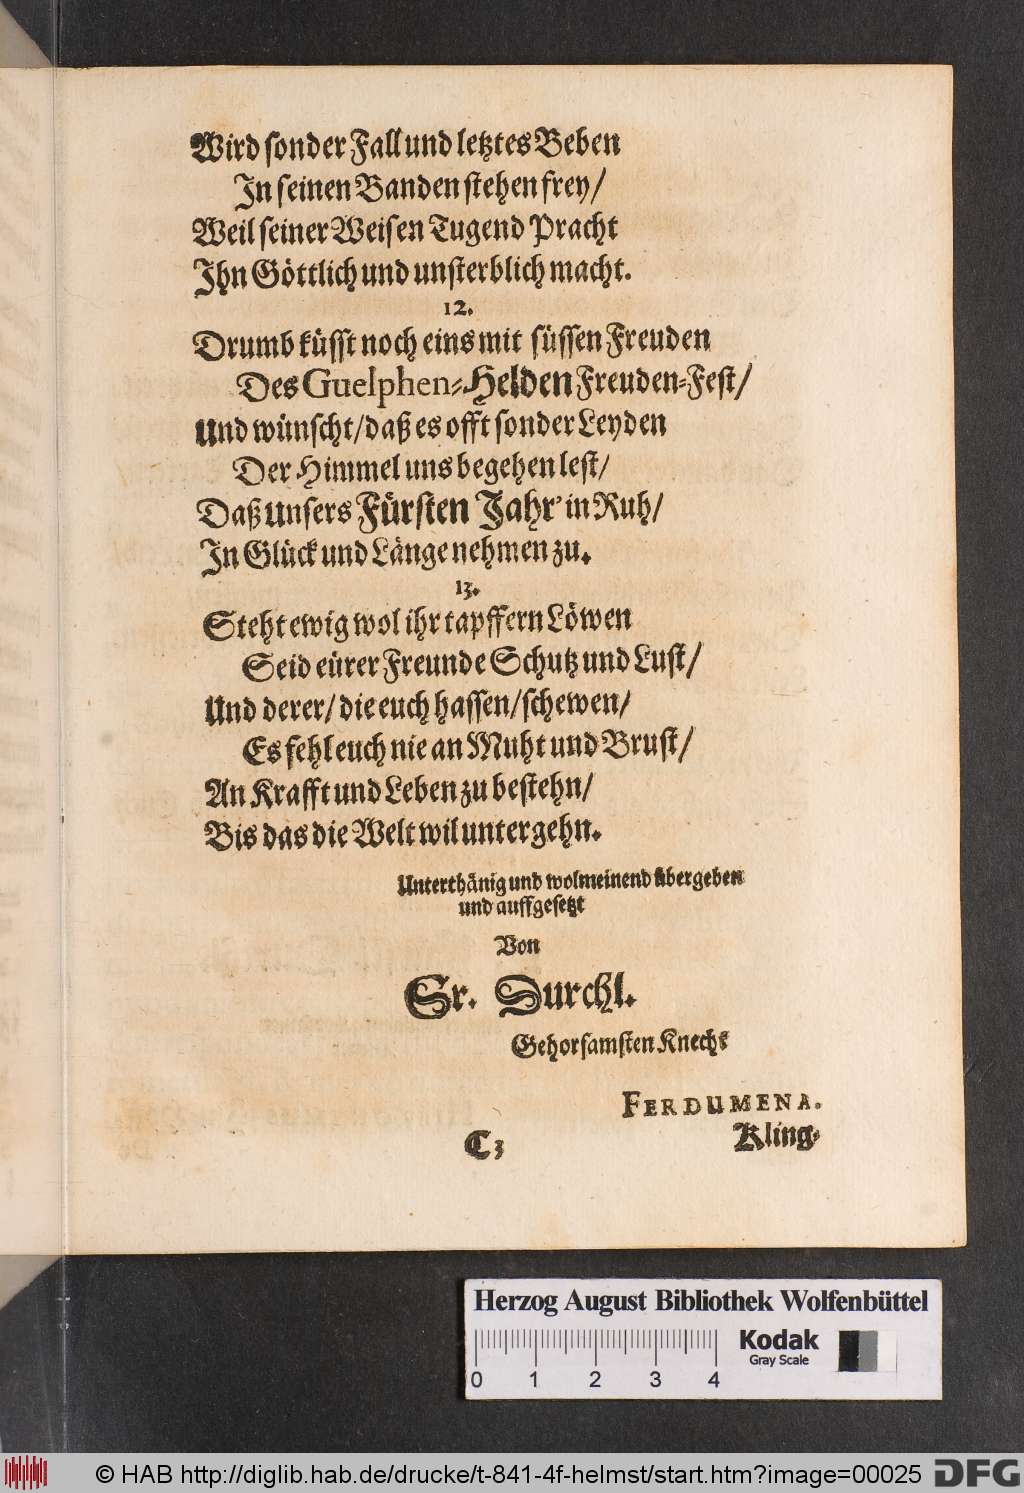 Wird sonder Fall und letztes Beben
In seinen Banden stehen frey/
Weil seiner Weisen Tugend Pracht
Ihn Göttlich und unsterblich macht.
12.
Drumb küsst noch eins mit süssen Freuden
Des Guelphen-Helden Freuden-Fest/
Und wünscht/daß es offt sonder Leyden
Der Himmel uns begehen lest/
Daß Unsers Fürsten Jahr' in Ruh/
In Glück und Länge nehmen zu.
13.
Steht ewig wol ihr tapffern Löwen
Seid eürer Freunde Schutz und Lust/
Und derer/ die euch hassen/schewen/
Es fehl euch nie an Muht und Brust/
An Krafft und Leben zu bestehn/
Bis das die Welt wil untergehn.
Unterthänig und wolmeinend übergeben
und auffgesetzt
Von
Sr. Durchl.
Gehorsamsten Knecht
FERDUMENA.
C3 Kling-
Herzog August Bibliothek Wolfenbüttel
Kodak
Gray Scale
0 1 2 3 4
© HAB http://diglib.hab.de/drucke/t-841-4f-helmst/start.htm?image=00025 DFG